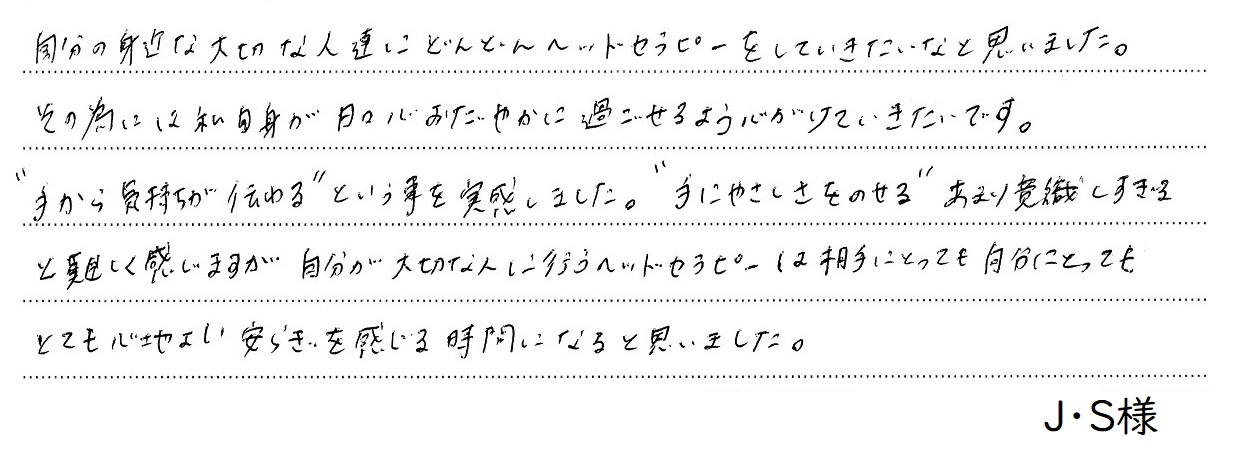 自分の身近な大切な人達にどんどんヘッドセラピーをしていきたいなと思いました。
その為には私自身が日々心おだやかに過ごせるよう心がけていきたいです。
"手から気持ちが伝わる"という事を実感しました。"手にやさしさをのせる"あまり意識しすぎる
と難しく感じますが自分が大切な人に行うヘッドセラピーは相手にとっても自分にとっても
とても心地よい安らぎを感じる時間になると思いました。
J・S様